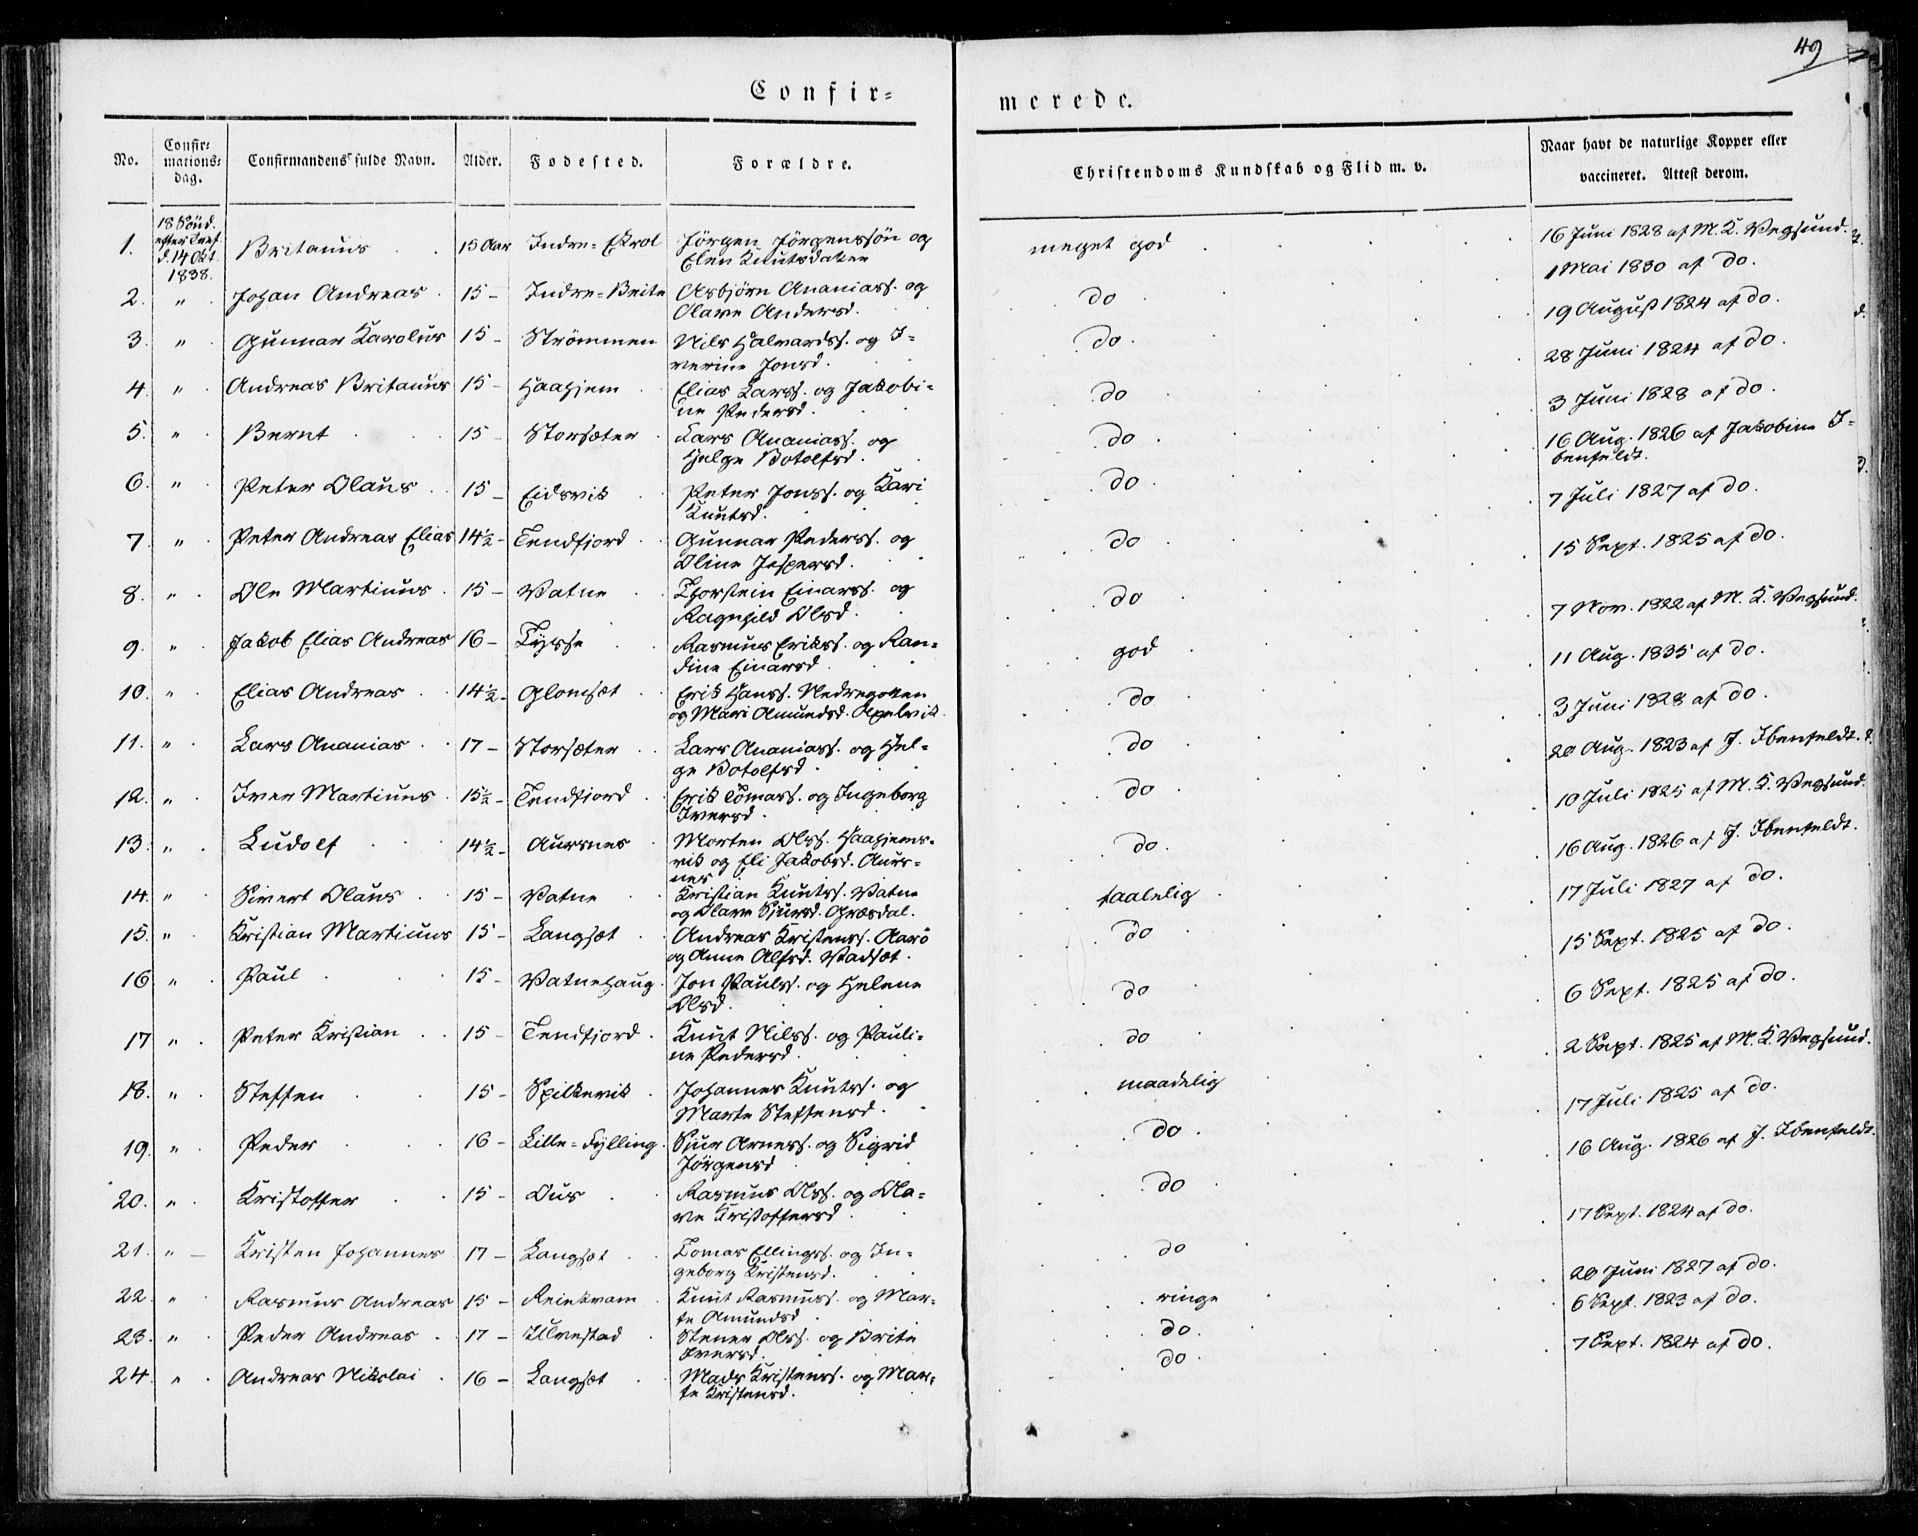 49
Confir=
merede.
No.
Confir=
mations=
dag.
Confirmandens fulde Navn.
Alder.
Fødested.
Forældre.
Christendoms Kundskab og Flid m. v.
Naar havt de naturlige Kopper eller
vaccineret. Attest derom.
18 Sönd.
efter Tref.
d. 14 Okt.
1838.
1. Britanus 15 Aar Indre=Ekrol Jörgen Jörgenssön og
Elen Knutsdatter
meget god 16 Juni 1828 af M. K. Vegsund.
2. " Johan Andreas 15 - Indre=Beite Asbjörn Ananiass. og
Olave Andersd.
do 1 Mai 1830 af do.
3. " Gunnar Karolus 15 - Strömmen Nils Halvardss. og I=
verine Jonsd.
do 19 August 1824 af do.
4. " Andreas Britanus 15 - Haahjem Elias Larss. og Jakobi=
ne Pedersd.
do 28 Juni 1824 af do.
5. " Bernt 15 - Storsæter Lars Ananiass. og
Helge Botolfsd.
do 3 Juni 1828 af do.
6. " Peter Olaus 15 - Eidsvik Peter Jonss. og Kari
Knutsd.
do 16 Aug. 1826 af Jakobine I=
benfeldt.
7. " Peter Andreas Elias 14½ - Tendfjord Gunnar Pederss. og
Oline Jespersd.
do 7 Juli 1827 af do.
8. " Ole Martinus 15 - Vatne Thorstein Einarss. og
Ragnhild Olsd.
do 15 Sept. 1825 af do.
9. " Jakob Elias Andreas 16 - Tyrse Rasmus Erikss. og Ran=
dine Einarsd.
god 7 Nov. 1822 af M. K. Vegsund.
10. " Elias Andreas 14½ - Glomsæt Erik Hanss. Nedregotten
og Mari Amundsd. Apelvik.
do 11 Aug. 1835 af do.
11. " Lars Ananias 17 - Storsæter Lars Ananiass. og Hel=
ge Botolfsd.
do 3 Juni 1828 af do.
12. " Iver Martinus 15½ - Tendfjord Erik Tomass. og Ingeborg
Iversd.
do 20 Aug. 1823 af J. Ibenfeldt.
13. " Ludolf 14½ - Aursnes Morten Olss. Haahjems=
vik og Eli Jakobsd. Aurs=
nes
do 10 Juli 1825 af M. K. Vegsund.
14. " Sivert Olaus 15 - Vatne Kristian Knutss. Vatne
og Olave Sjursd. Græsdal.
taalelig 16 Aug. 1826 af J. Ibenfeldt.
15. " Kristian Martinus 15 - Langsæt Andreas Kristenss. Aarö
og Anne Alfsd. Vadsæt.
do 17 Juli 1827 af do.
16. " Paul 15 - Vatnehaug Jon Paulss. og Helene
Olsd.
do 15 Sept. 1825 af do.
17. " Peter Kristian 15 - Tendfjord Knut Nilss. og Pauli=
ne Pedersd.
do 6 Sept. 1825 af do.
18. " Steffen 15 - Spilkevik Johannes Knutss. og
Marte Steffensd.
maadelig 2 Sept. 1825 af M. K. Vegsund.
19. " Peder 16 - Lille=Fylling Sjur Arness. og Sigrid
Jörgensd
do 17 Juli 1825 af do.
20. " Kristoffer 15 - Ous Rasmus Olss. og Ola=
ve Kristoffersd
do 16 Aug. 1826 af J. Ibenfeldt.
21. " Kristen Johannes 17 - Langsæt Tomas Ellingss. og In=
geborg Kristensd.
do 17 Sept. 1824 af do.
22. " Rasmus Andreas 15 - Reinkvam Knut Rasmuss. og Mar=
te Amundsd
ringe 20 Juni 1827 af do.
23. " Peder Andreas 17 - Ulvestad Stener Olss. og Brite
Iversd.
do 6 Sept. 1823 af do.
24. " Andreas Nikolai 16 - Langsæt Mads Kristenss. og Mar=
te Kristensd.
do 7 Sept. 1824 af do.